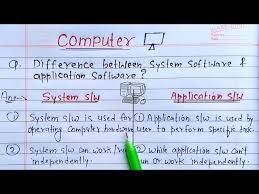 Computer
Q. Difference between System Software &
application Software ?
Ans→ System S/w Application S/w
① System S/w is used for ① Application S/w is used by
operating Computer hardware user to perform Specific task.
② System S/w can work/run ② While application S/w can't
independently. run or work independently.